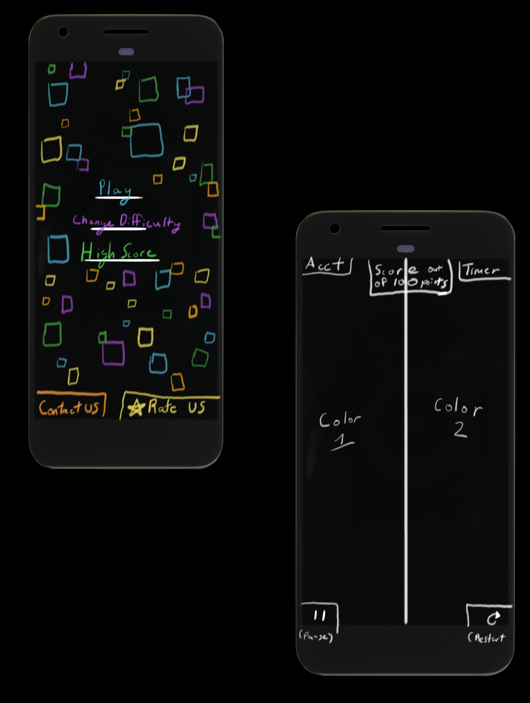 Play
Change Difficulty
High Score
Contact US
Rate US
Acct
Score out
of 100 points
Timer
Color
1
Color
2
(Pause)
(Restart